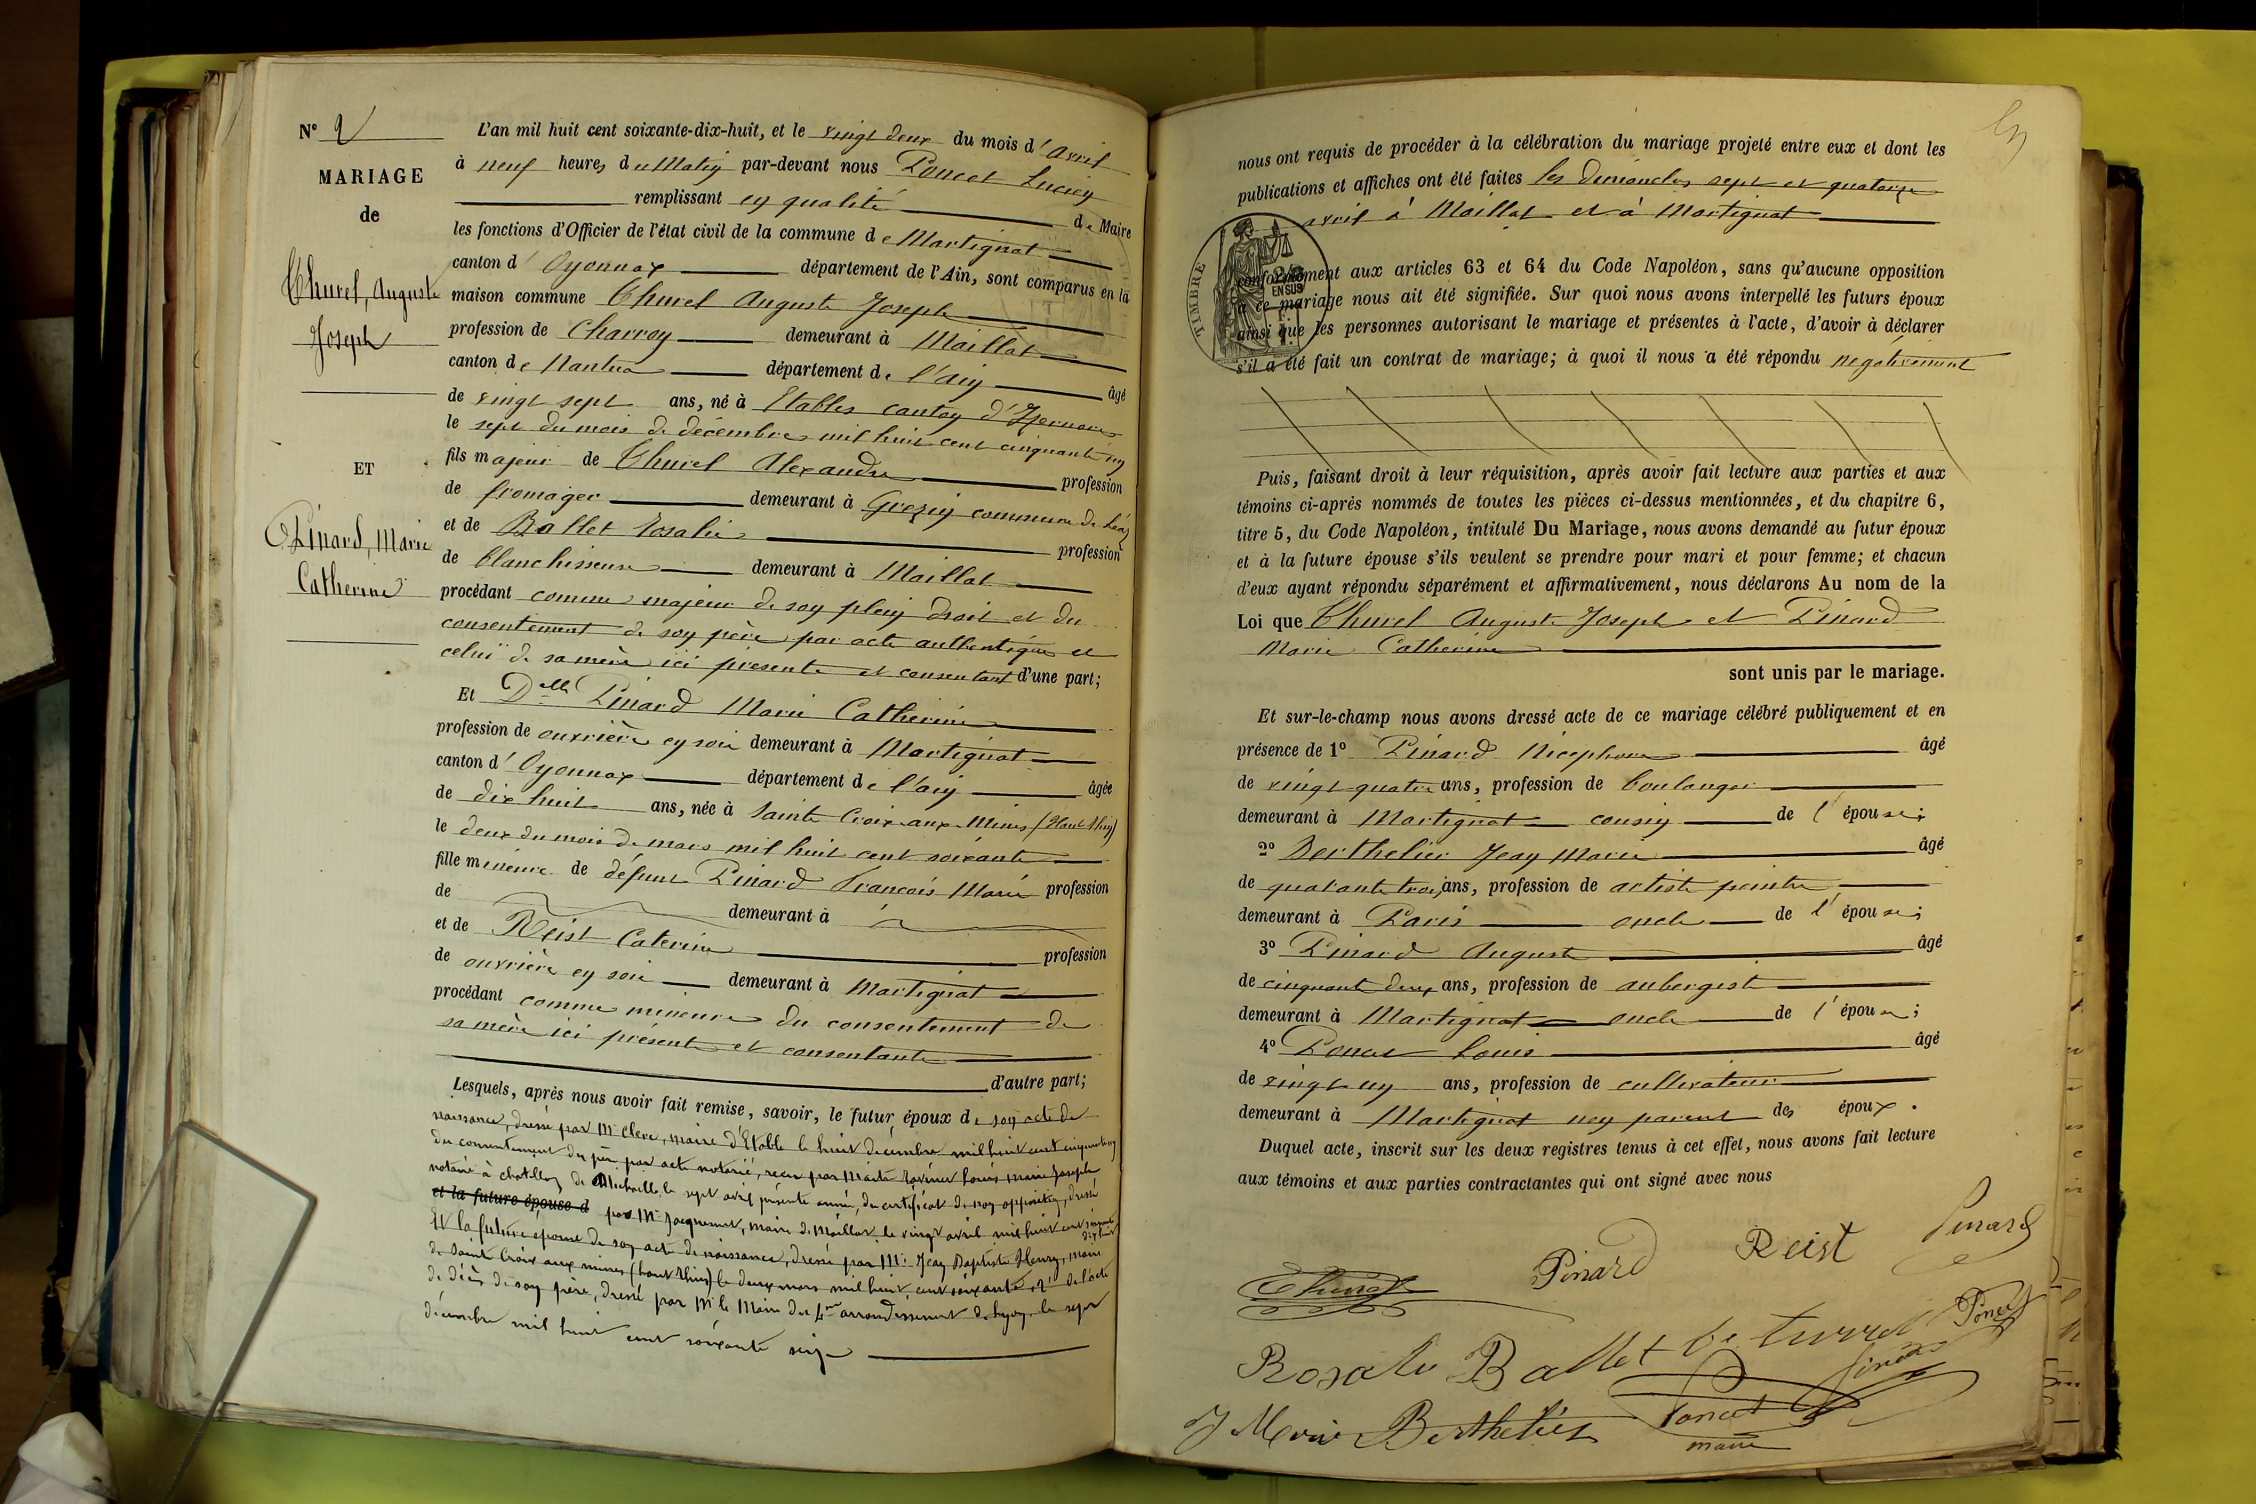 N° 2
MARIAGE
de
Thurel, Auguste
Joseph
ET
Pinard, Marie
Catherine
L'an mil huit cent soixante-dix-huit, et le vingt deux du mois d'Avril
à neuf heures du Matin par-devant nous Poncet Lucien
remplissant en qualité de Maire
les fonctions d'Officier de l'état civil de la commune de Martignat
canton d'Oyonnax département de l'Ain, sont comparus en la
maison commune Thurel Auguste Joseph
profession de Charron demeurant à Maillat
canton de Nantua département de l'ain âgé
de vingt sept ans, né à Etables canton d'Izernore
le sept du mois de décembre mil huit cent cinquante
fils majeur de Thurel Alexandre profession
de fromager demeurant à Grezin commune de Léaz
et de Ballet Rosalie profession
de blanchisseuse demeurant à Maillat
procédant comme majeur de son plein droit et du
consentement de son père par acte authentique et
celui de sa mère ici présente et consentant d'une part;
Et Delle Pinard Marie Catherine
profession de ouvrière en soie demeurant à Martignat
canton d'Oyonnax département de l'ain âgée
de dix huit ans, née à Sainte Croix aux Mines (Haut Rhin)
le deux du mois de mars mil huit cent soixante
fille mineure de défunt Pinard François Marie profession
de demeurant à
et de Reist Caterine profession
de ouvrière en soie demeurant à Martignat
procédant comme mineure du consentement de
sa mère ici présente et consentante
d'autre part;
Lesquels, après nous avoir fait remise, savoir, le futur époux de son acte de
naissance, dressé par Mr Clerc, maire d'Etable le huit décembre mil huit cent cinquante
du consentement du père par acte notarié, recu par Maitre Louis Marie Joseph
notaire à chatillon de Michaille, le sept avril présente année, du certificat de non opposition, dressé
et la future épouse d par Mr Jacquemet, maire de Maillat, le vingt avril mil huit cent soixante dix huit
Et la future epouse de son acte de naissance, dressé par Mr Jean Baptiste Henry, maire
de Sainte Croix aux mines (haut Rhin) le deux mars mil huit cent soixante, et de l'acte
de décès de son père, dressé par Mr le Maire du 4me arrondissement de Lyon, le sept
décembre mil huit cent soixante seize
nous ont requis de procéder à la célébration du mariage projeté entre eux et dont les
publications et affiches ont été faites les dimanches sept et quatorze
avril à Maillat et à Martignat
TIMBRE
EN SUS
conformément aux articles 63 et 64 du Code Napoléon, sans qu'aucune opposition
à ce mariage nous ait été signifiée. Sur quoi nous avons interpellé les futurs époux
ainsi que les personnes autorisant le mariage et présentes à l'acte, d'avoir à déclarer
s'il a été fait un contrat de mariage; à quoi il nous a été répondu négativement
Puis, faisant droit à leur réquisition, après avoir fait lecture aux parties et aux
témoins ci-après nommés de toutes les pièces ci-dessus mentionnées, et du chapitre 6,
titre 5, du Code Napoléon, intitulé Du Mariage, nous avons demandé au futur époux
et à la future épouse s'ils veulent se prendre pour mari et pour femme; et chacun
d'eux ayant répondu séparément et affirmativement, nous déclarons Au nom de la
Loi que Thurel Auguste Joseph et Pinard
Marie Catherine
sont unis par le mariage.
Et sur-le-champ nous avons dressé acte de ce mariage célébré publiquement et en
présence de 1° Pinard Nicephore âgé
de vingt quatre ans, profession de boulanger
demeurant à Martignat cousin de l'épouse;
2° Berthelier Jean Marie âgé
de quarante trois ans, profession de artiste peintre
demeurant à Paris oncle de l'épouse;
3° Pinard Auguste âgé
de cinquante deux ans, profession de aubergiste
demeurant à Martignat oncle de l'épouse;
4° Poncet Louis âgé
de vingt un ans, profession de cultivateur
demeurant à Martignat non parent des époux.
Duquel acte, inscrit sur les deux registres tenus à cet effet, nous avons fait lecture
aux témoins et aux parties contractantes qui ont signé avec nous
Thurel Pinard Reist Pinard
Rosalie Ballet fe turrel Poncet
J Marie Berthelier Poncet
maire